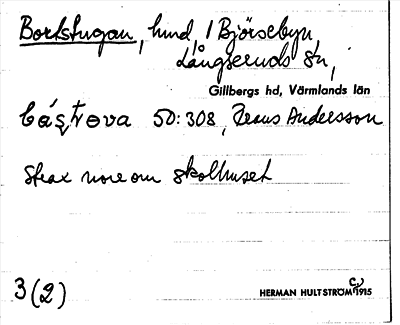 Borkstugan, hmd, i Björsebyn,
Långseruds sn,
Gillbergs hd, Värmlands län
50:308, Jenus Andersson
Strax norr om skolhuset
3(2)
HERMAN HULTSTRÖM 1915